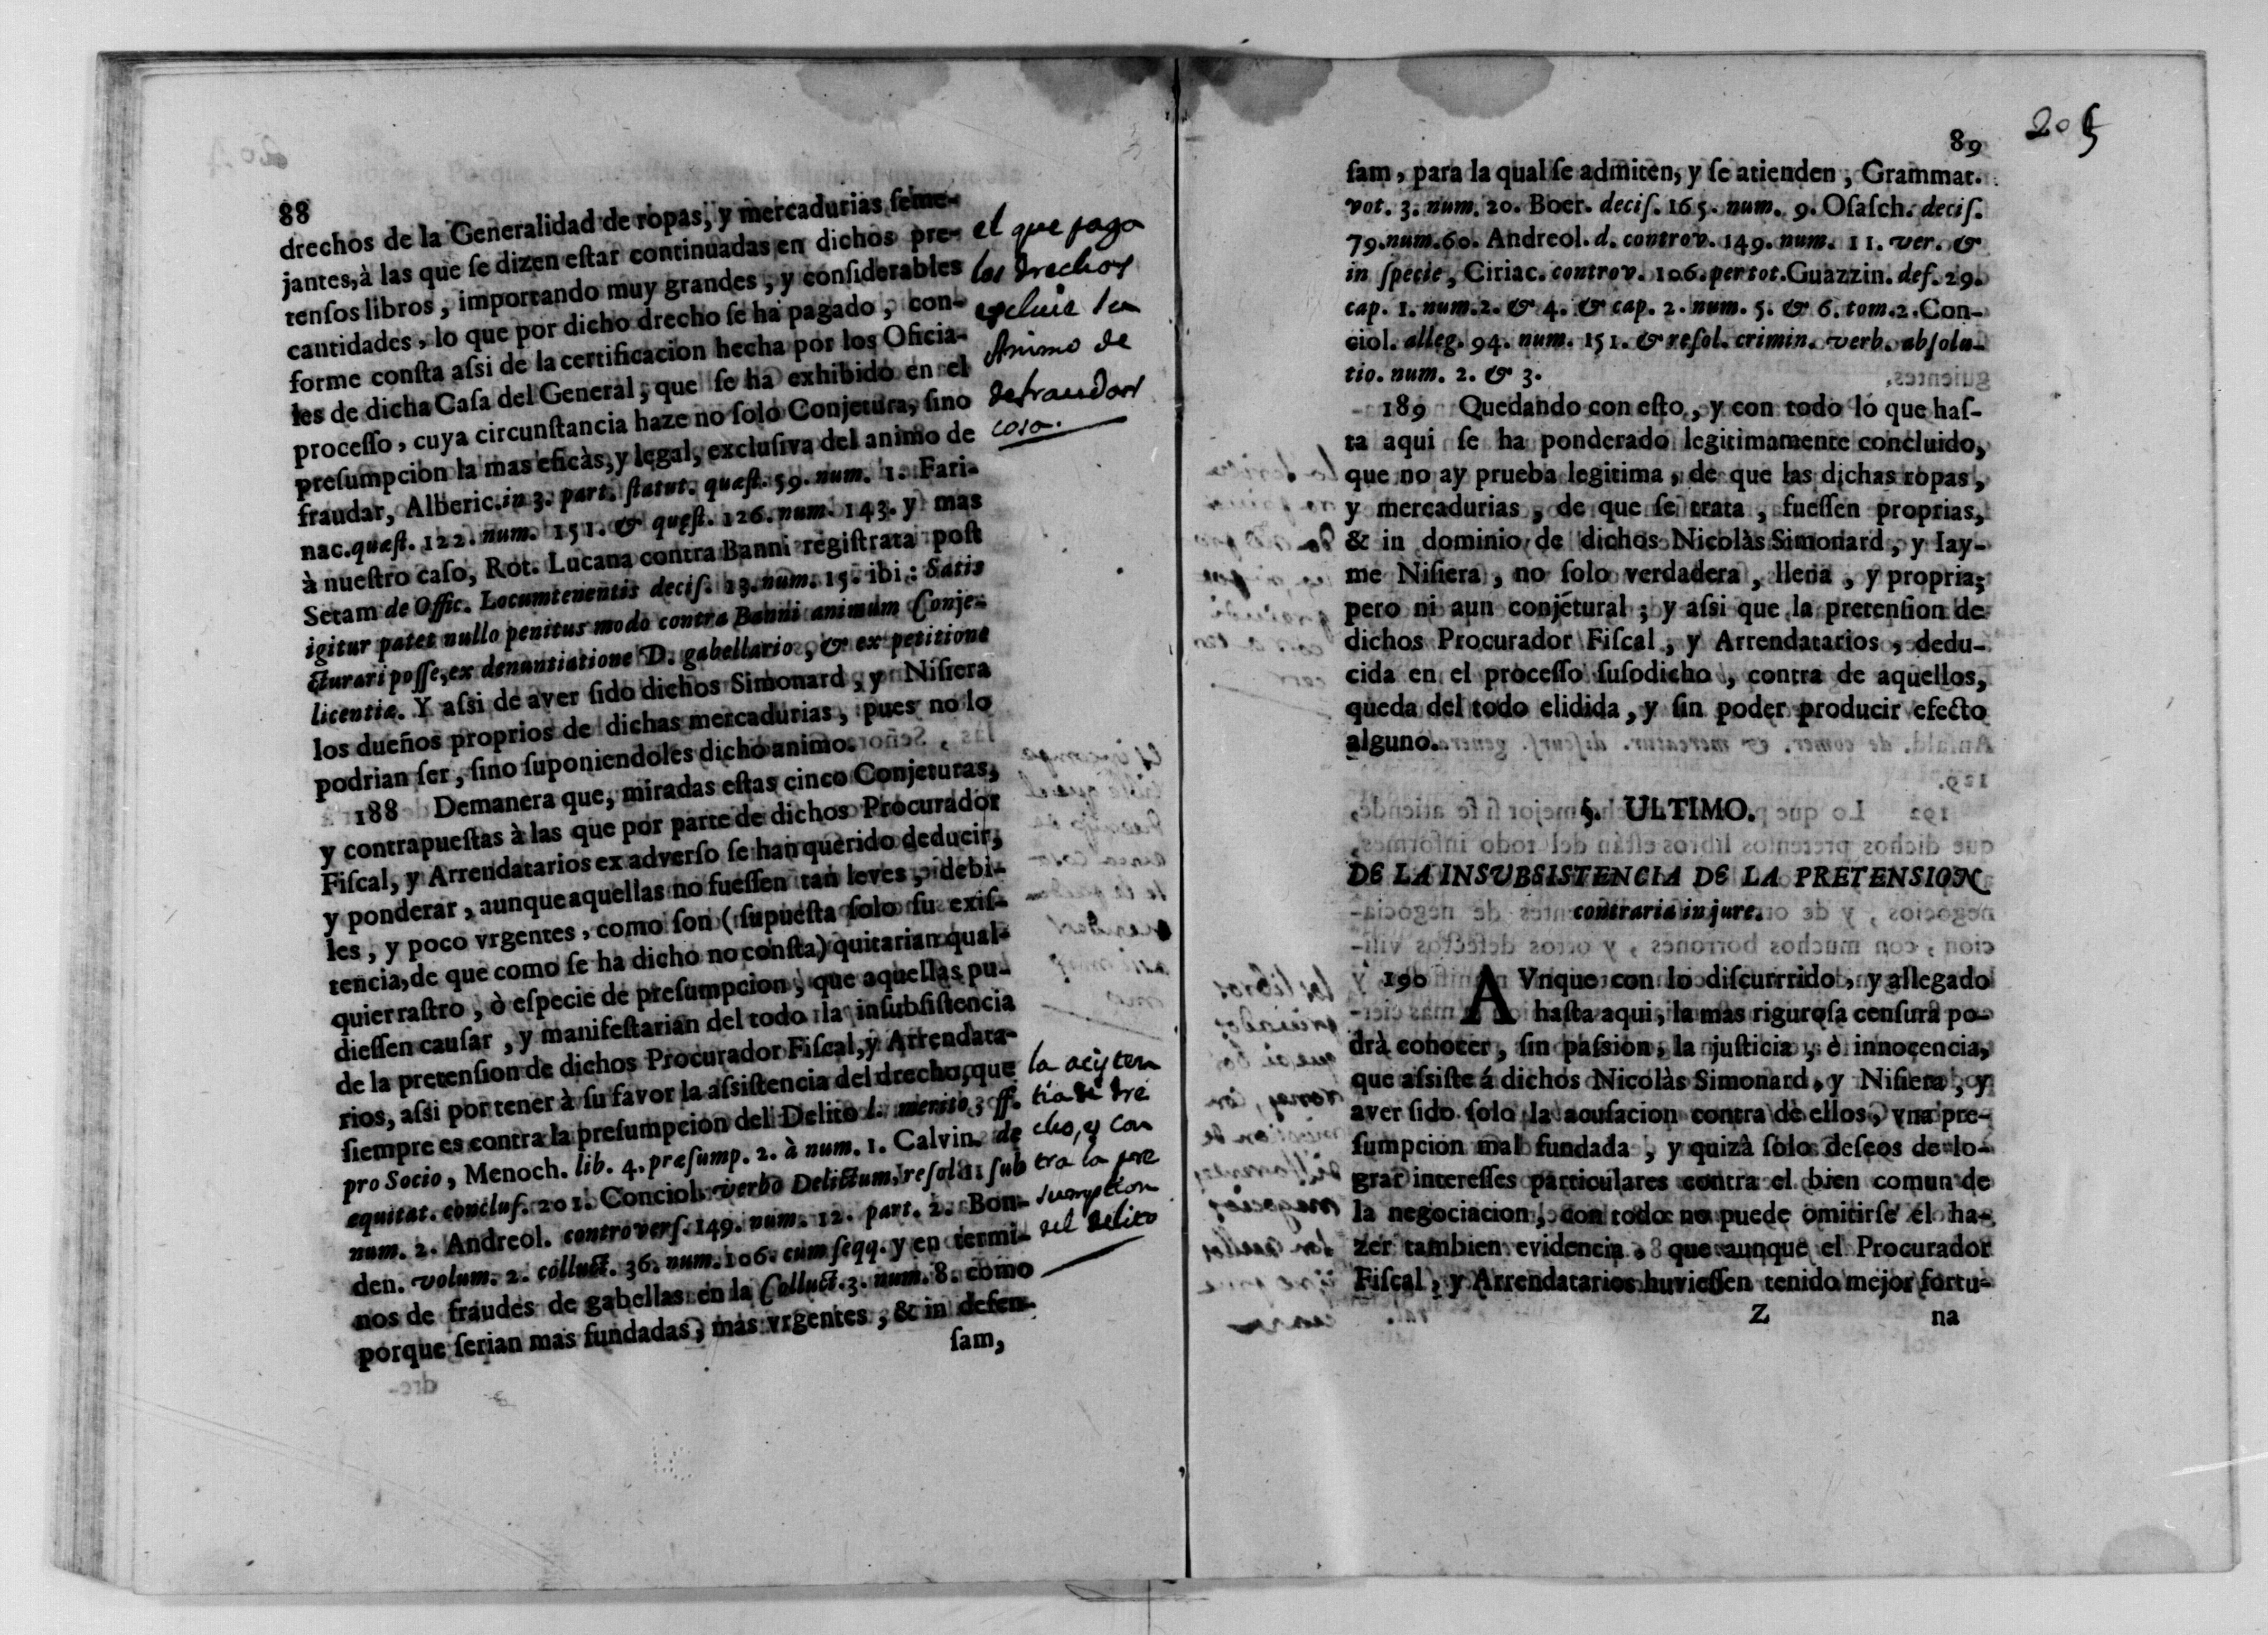 88
drechos de la Generalidad de ropas, y mercadurias ſeme-
jantes, à las que ſe dizen eſtar continuadas en dichos pre-
tenſos libros, importando muy grandes, y conſiderables
cantidades, lo que por dicho drecho ſe ha pagado, con-
forme conſta aſsi de la certificacion hecha por los Oficia-
les de dicha Caſa del General, que ſe ha exhibido en el
proceſſo, cuya circunſtancia haze no ſolo Conjetura, ſino
preſumpcion la mas eficàs, y legal, excluſiva del animo de
fraudar, Alberic. in 3. part. ſtatut. quæſt. 59. num. 1. Fari-
nac. quæſt. 122. num. 151. & quęſt. 126. num. 143. y mas
à nueſtro caſo, Rot. Lucana contra Banni regiſtrata poſt
Setam de Offic. Locumtenentis deciſ. 23. num. 15. ibi: Satis
igitur patet nullo penitus modo contra Banni animum Conje-
cturari poſſe, ex denuntiatione D. gabellario, & ex petitione
licentiæ. Y aſsi de aver ſido dichos Simonard, y Niſiera
los dueños proprios de dichas mercadurias, pues no lo
podrian ſer, ſino ſuponiendoles dicho animo.
188 Demanera que, miradas eſtas cinco Conjeturas,
y contrapueſtas à las que por parte de dichos Procurador
Fiſcal, y Arrendatarios ex adverſo ſe han querido deducir,
y ponderar, aunque aquellas no fueſſen tan leves, debi-
les, y poco vrgentes, como ſon (ſupueſta ſolo ſu exiſ-
tencia, de que como ſe ha dicho no conſta) quitarian qual-
quier raſtro, ò eſpecie de preſumpcion, que aquellas pu-
dieſſen cauſar, y manifeſtarian del todo la inſubſiſtencia
de la pretenſion de dichos Procurador Fiſcal, y Arrendata-
rios, aſsi por tener à ſu favor la aſsiſtencia del drecho, que
ſiempre es contra la preſumpcion del Delito l. merito, ff.
pro Socio, Menoch. lib. 4. præſump. 2. à num. 1. Calvin. de
equitat. concluſ. 201. Conciol. verbo Delictum, reſol. 1. ſub
num. 2. Andreol. controverſ. 149. num. 12. part. 2. Bon-
den. volum. 2. colluct. 36. num. 106. cum ſeqq. y en termi-
nos de fraudes de gabellas en la Colluct. 3. num. 8. como
porque ſerian mas fundadas, mas vrgentes, & in defen-
ſam,
el que paga
los drechos
excluie su
Animo de
defraudar
cosa.
la acisten
tia de dre
cho, es con
tra la pre
sumption
del delito
205
89
ſam, para la qual ſe admiten, y ſe atienden, Grammat.
vot. 3. num. 20. Boer. deciſ. 165. num. 9. Oſaſch. deciſ.
79. num. 60. Andreol. d. controv. 149. num. 11. ver. &
in ſpecie, Ciriac. controv. 106. per tot. Guazzin. def. 29.
cap. 1. num. 2. & 4. & cap. 2. num. 5. & 6. tom. 2. Con-
ciol. alleg. 94. num. 151. & reſol. crimin. verb. abſolu-
tio. num. 2. & 3.
189 Quedando con eſto, y con todo lo que haſ-
ta aqui ſe ha ponderado legitimamente concluido,
que no ay prueba legitima, de que las dichas ropas,
y mercadurias, de que ſe trata, fueſſen proprias,
& in dominio de dichos Nicolàs Simonard, y Iay-
me Niſiera, no ſolo verdadera, llena, y propria;
pero ni aun conjetural; y aſsi que la pretenſion de
dichos Procurador Fiſcal, y Arrendatarios, dedu-
cida en el proceſſo ſuſodicho, contra de aquellos,
queda del todo elidida, y ſin poder producir efecto
alguno.
§. ULTIMO.
DE LA INSVBSISTENCIA DE LA PRETENSION
contraria in jure.
190 AVnque con lo diſcurrrido, y allegado
haſta aqui, la mas riguroſa cenſura po-
drà conocer, ſin paſsion, la juſticia, è innocencia,
que aſsiſte á dichos Nicolàs Simonard, y Niſiera, y
aver ſido ſolo la acuſacion contra de ellos, vna pre-
ſumpcion mal fundada, y quizà ſolo deſeos de lo-
grar intereſſes particulares contra el bien comun de
la negociacion, con todo no puede omitirſe el ha-
zer tambien evidencia, que aunque el Procurador
Fiſcal, y Arrendatarios huvieſſen tenido mejor fortu-
Z na